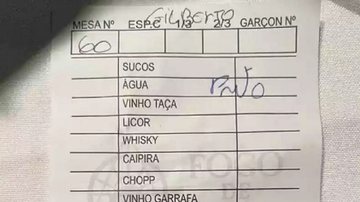 GILBERTO
MESA Nº ESP.C 1/3 2/3 GARÇON Nº
60
SUCOS
ÁGUA
VINHO TAÇA
LICOR
WHISKY
CAIPIRA
CHOPP
VINHO GARRAFA
FOGO
DE